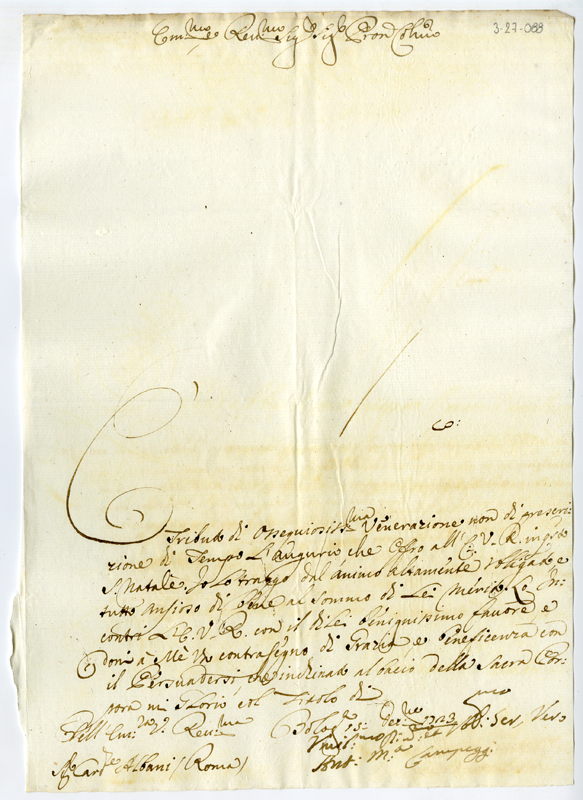 3-27-088
Em.mo e Rev.mo Sig.r Sig.r Pron Col.mo
È Tributo di Ossequiosiss.ma Venerazione non di prescri-
zione di Tempo L'augurio che Offro all' E. V. R. in q.sto
S. Natale. Io lo traggo dal animo altamente obligato e
tutto ansioso di Bene al sommo di Lei Merito. Lo In-
contri L' E. V. R. con il di Lei benignissimo favore e
doni à Mè Un contrasegno di Grazia e beneficenza con
il Persuadersi che inchinato al bacio della Sacra Por-
pora mi Glorio col Titolo di
Dell' Em.za V. Rev.ma
Bolog.a 15: Xbre 1723
Umil.mo Ser. Vero
S.r Card.le Albani (Roma)
Ant: M.a Campeggi